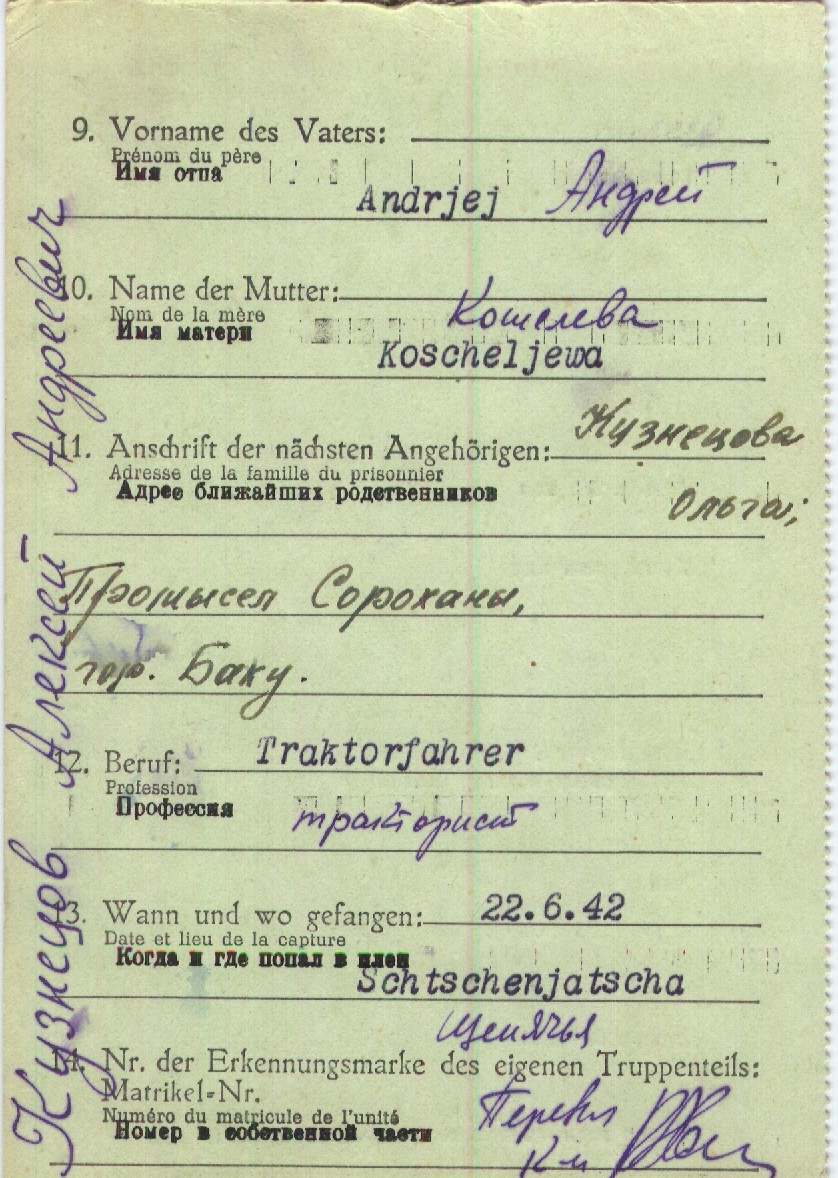 9. Vorname des Vaters:
Prénom du père
Имя отца
Andrjej Андрей
10. Name der Mutter:
Nom de la mère
Имя матери
Кошелева
Koscheljewa
11. Anschrift der nächsten Angehörigen: Кузнецова
Adresse de la famille du prisonnier
Адрес ближайших родственников
Ольга;
Промысел Сороханы,
гор. Баку.
12. Beruf: Traktorfahrer
Profession
Профессия
тракторист
13. Wann und wo gefangen: 22.6.42
Date et lieu de la capture
Когда и где попал в плен
Schtschenjatscha
Щенячья
14. Nr. der Erkennungsmarke des eigenen Truppenteils:
Matrikel-Nr.
Numéro du matricule de l'unité
Номер в собственной части
Перевел
Кузнецов Алексей Андреевич